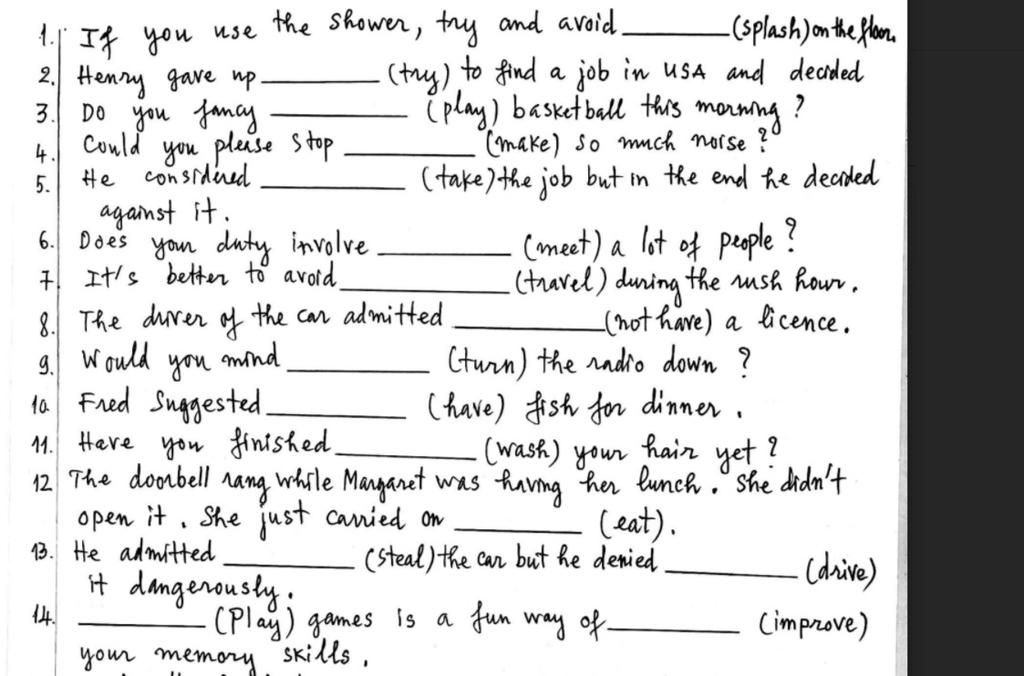 1. If you use the shower, try and avoid ________ (splash) on the floor.
2. Henry gave up ________ (try) to find a job in USA and decided
3. Do you fancy ________ (play) basketball this morning?
4. Could you please stop ________ (make) so much noise?
5. He considered ________ (take) the job but in the end he decided
against it.
6. Does your duty involve ________ (meet) a lot of people?
7. It's better to avoid ________ (travel) during the rush hour.
8. The driver of the car admitted ________ (not have) a licence.
9. Would you mind ________ (turn) the radio down?
10. Fred Suggested ________ (have) fish for dinner.
11. Have you finished ________ (wash) your hair yet?
12 The doorbell rang while Margaret was having her lunch. She didn't
open it. She just carried on ________ (eat).
13. He admitted ________ (steal) the car but he denied ________ (drive)
it dangerously.
14. ________ (Play) games is a fun way of ________ (improve)
your memory skills.